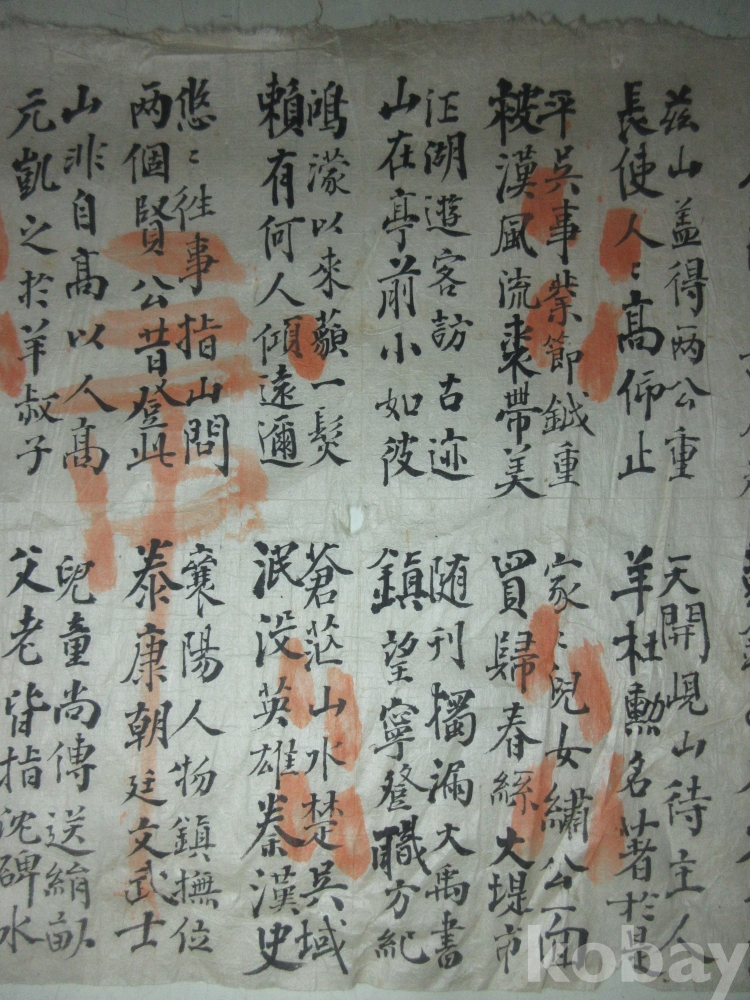 茲山盖得兩公重
長使人〻高仰止
平吳事業節鉞重
被漢風流裘帶美
江湖遊客訪古迹
山在亭前小如彼
鴻濛以來巓一髮
賴有何人傾遠邇
悠〻往事指山問
两個賢公昔登此
山非自高以人高
元凱之於羊叔子
天開峴山待主人
羊杜勳名著於是
家〻兒女繡公面
買歸春絲大堤市
随刊獨漏大禹書
鎮望寧登職方紀
蒼茫山水楚吳域
泯没英雄秦漢史
襄陽人物鎮撫位
泰康朝廷文武士
兒童尚傳送絹畝
父老皆指沈碑水
kobay